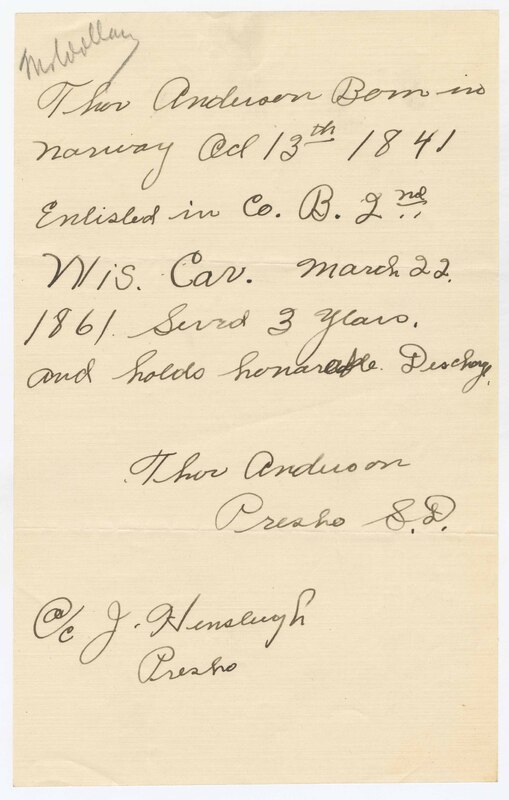 Thor Anderson Born in
Norway Oct 13th 1841
Enlisted in Co. B. 2nd
Wis. Cav. March 22.
1861. Served 3 Years.
and holds honarable Discharge.
Thor Anderson
Presho S.D.
a/c J. Hensleigh
Presho